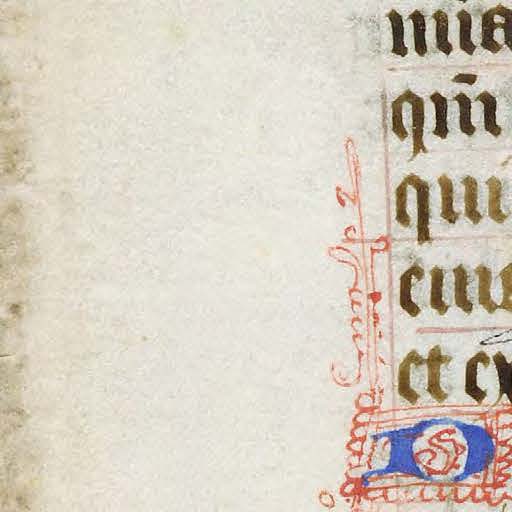 mia
qm̄
qui
eius
et ex
D